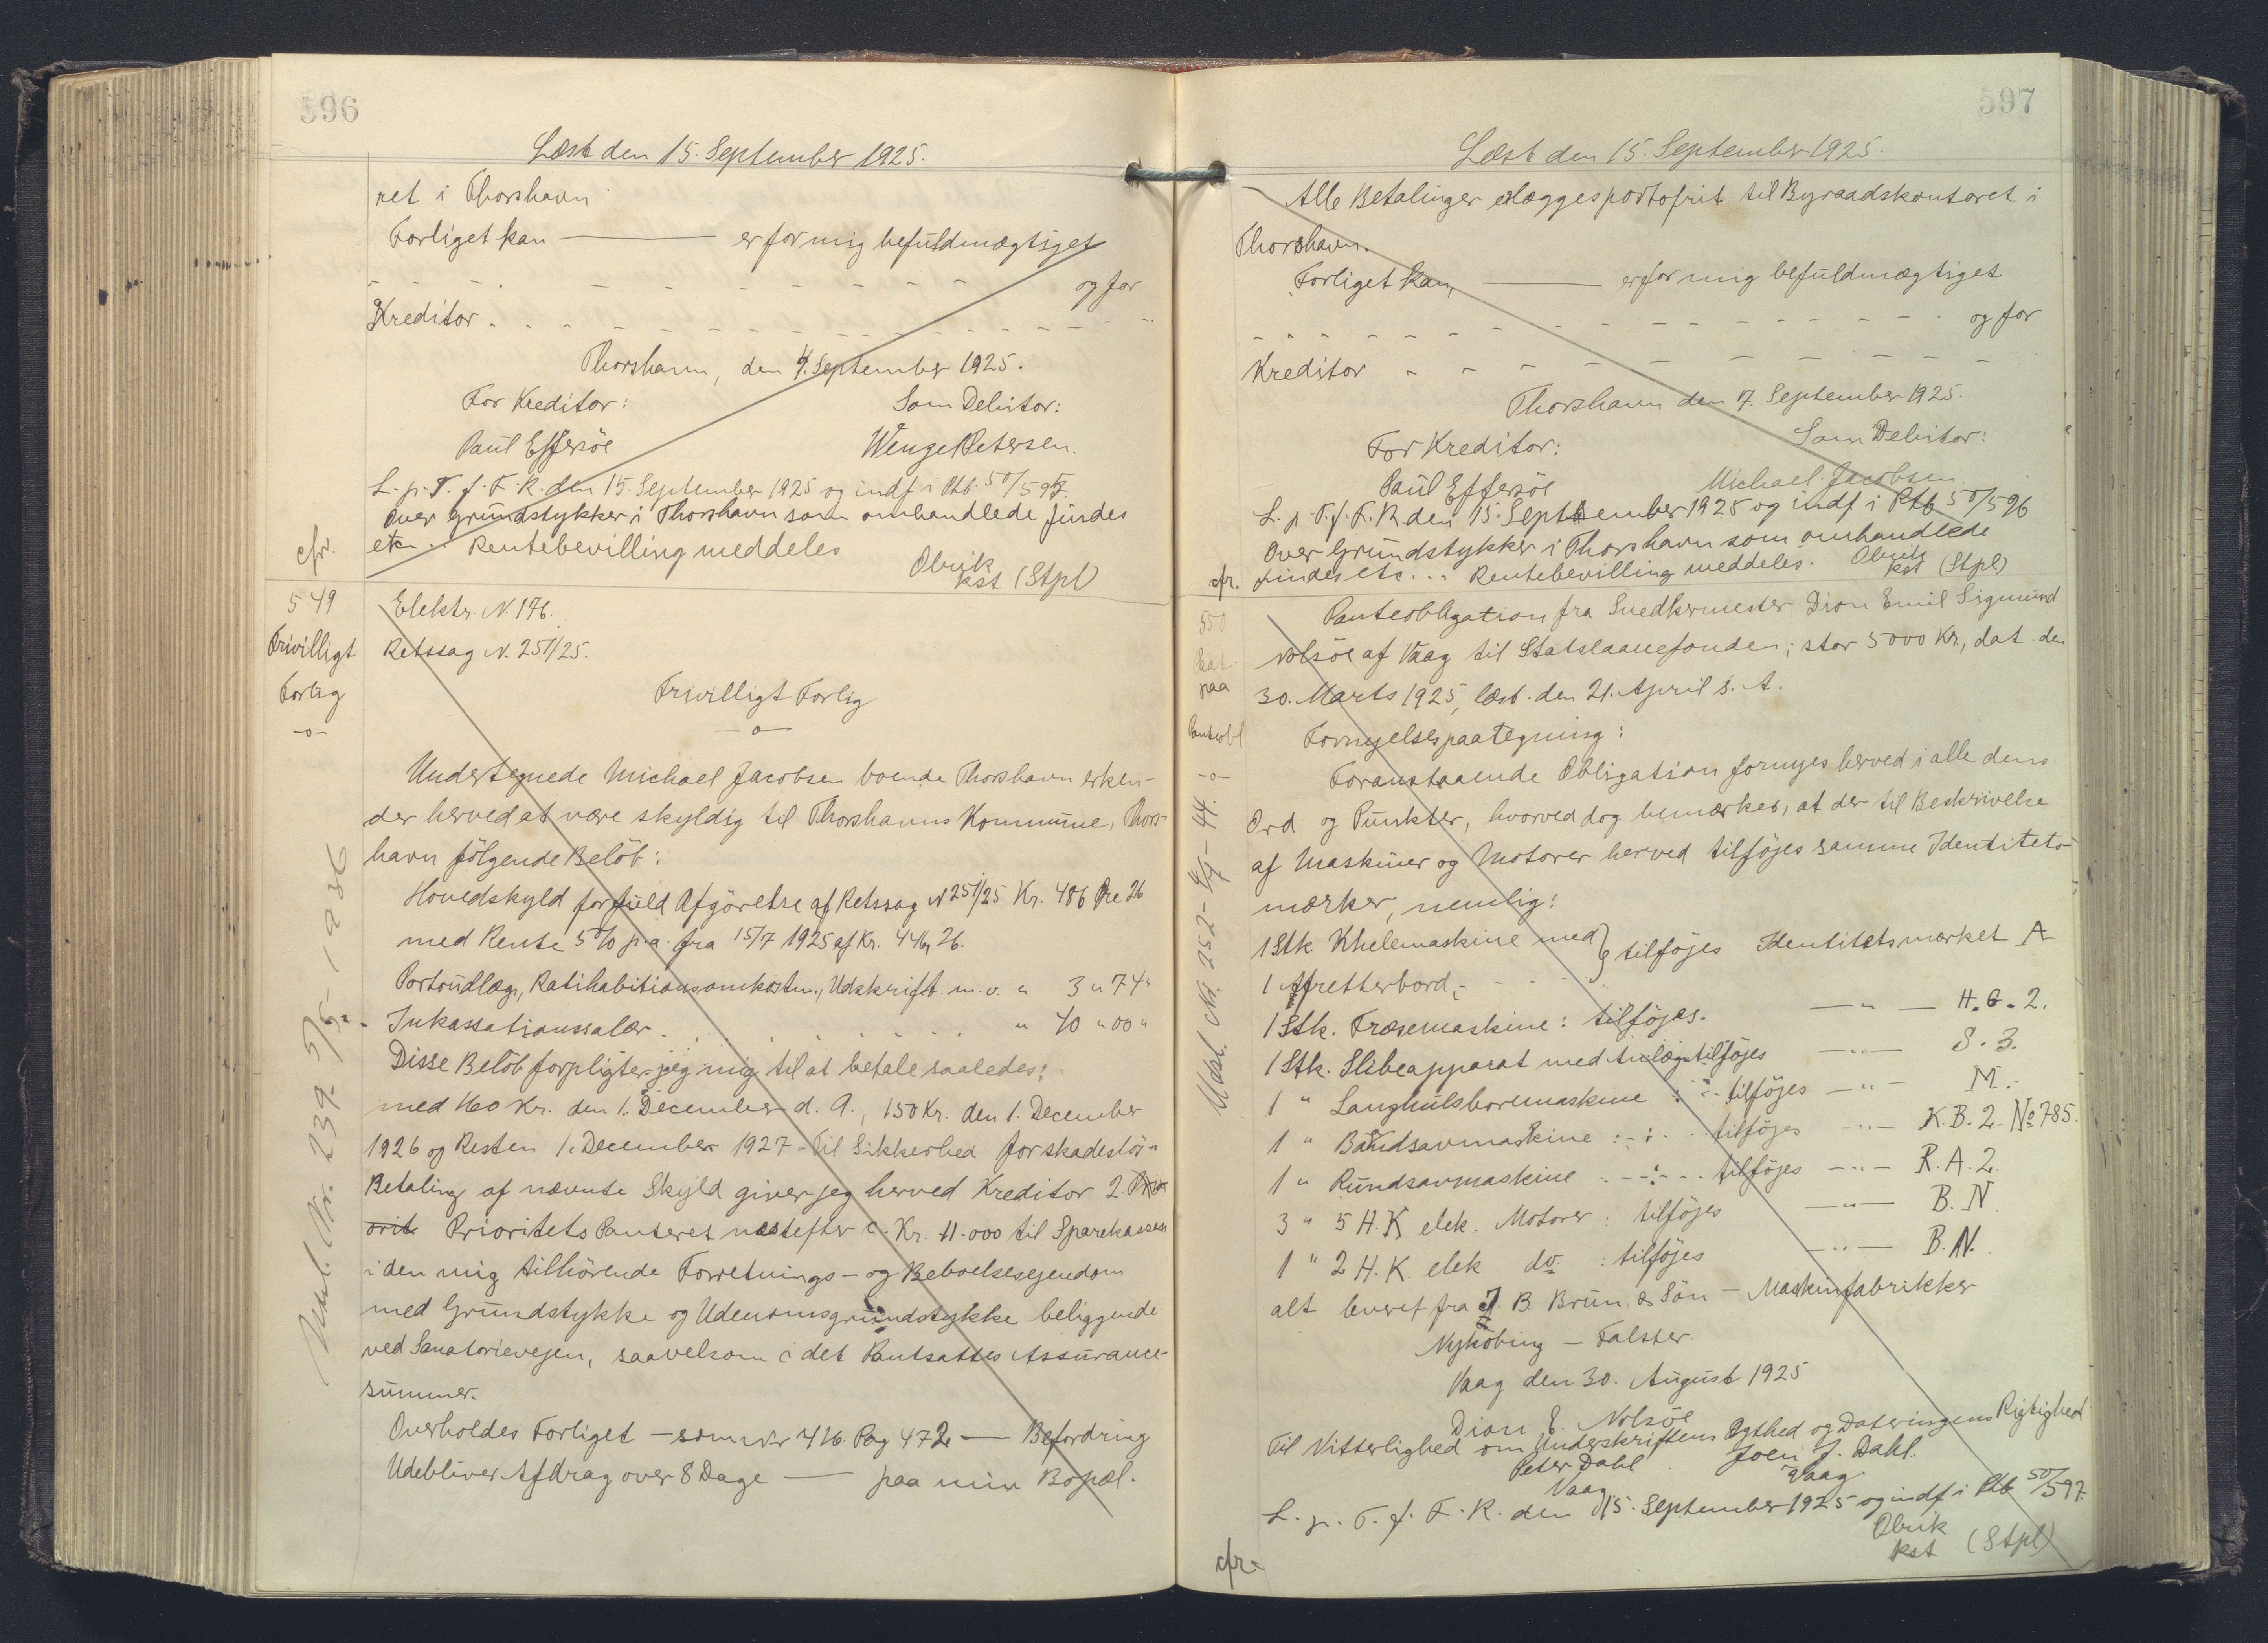 596
Læst den 15. September 1925.
ret i Thorshavn
Forliget kan — er for mig befuldmægtiget
og for
Kreditor
Thorshavn, den 4. September 1925.
For Kreditor: Som Debitor:
Paul Effersöe Wenzel Petersen.
L. p. T. f. F. R. den 15. September 1925 og indf i Ptb. 50/595.
Over Grundstykker i Thorshavn som omhandlede findes
etc. .. Rentebevilling meddeles
Obrik
kst (Stpl)
cfr.
549
Frivilligt
Forlig
-o-
Elektr. N. 176.
Retssag N. 251/25.
Frivilligt Forlig
-o-
Undertegnede Michael Jacobsen boende Thorshavn erken-
der herved at være skyldig til Thorshavns Kommune, Thors-
havn følgende Beløb:
Hovedskyld for fuld Afgörelse af Retssag N 251/25 Kr. 486 Øre 26
med Rente 5% p.a. fra 15/7 1925 af Kr. 446,26.
Portoudlæg, Ratihabitionsomkostn., Udskrift m. v. " 3 " 74 "
Inkassationssalær. " 40 " 00 "
Disse Beløb forpligter jeg mig til at betale saaledes:
med 160 Kr. den 1. December d. A., 150 Kr. den 1. December
1926 og Resten 1. December 1927 - Til Sikkerhed for skadeslös
Betaling af nævnte Skyld giver jeg herved Kreditor 2. Pri
orit Prioritets Panteret næstefter c. Kr. 11.000 til Sparekassen
i den mig tilhörende Forretnings- og Beboelsesejendom
med Grundstykke og Udenomsgrundstykke beliggende
ved Sanatorievejen, saavelsom i det Pantsattes Assurance-
summer.
Overholdes Forliget — som Nr 416. Pag 472 — Befordring
Udebliver Afdrag over 8 Dage — paa min Bopæl.
Udsl. Nr. 239 5/5 - 1936
597
Læst den 15. September 1925.
Alle Betalinger erlægges portofrit til Byraadskontoret i
Thorshavn.
Forliget kan — er for mig befuldmægtiget
og for
Kreditor
Thorshavn den 7. September 1925.
For Kreditor: Som Debitor:
Paul Effersöe Michael Jacobsen
L. p. T. f. F. R. den 15. September 1925 og indf i Ptb 50/596
Over Grundstykker i Thorshavn som omhandlede
findes etc... Rentebevilling meddeles. Obrik
kst (Stpl)
cfr.
550
Paat.
paa
Panteobl
-o-
Panteobligation fra Snedkermester Dion Emil Sigmund
Nolsöe af Vaag til Statslaanefonden; stor 5000 Kr., dat. den
30. Marts 1925, læst. den 21. April s. A.
Fornyelsespaategning:
Foranstaaende Obligation fornyes herved i alle dens
Ord og Punkter, hvorved dog bemærkes, at der til Beskrivelse
af Maskiner og Motorer herved tilföjes samme Identitets-
mærker, nemlig:
1 Stk. Khelemaskine med } tilföjes Identitetsmærket A
1 Afretterbord,
1 Stk. Fræsemaskine: tilföjes. —"— H. G. 2.
1 Stk. Slibeapparat med tilföjes —"— S. 3.
1 " Langhulsboremaskine : tilföjes —"— M.
1 " Båndsavmaskine : tilföjes —"— K. B. 2. No 785.
1 " Rundsavmaskine : tilföjes —"— R. A. 2.
3 " 5 H. K elek. Motorer : tilföjes —"— B. N.
1 " 2 H. K. elek do : tilföjes —"— B. N.
alt leveret fra J. B. Brun & Sön — Maskinfabrikker
Nyköbing — Falster
Vaag den 30. August 1925
Dion E. Nolsöe
Til Vitterlighed om Underskriftens Ægthed og Dateringens Rigtighed
Peter Dahl Joen J. Dahl.
Vaag Vaag.
L. p. T. f. F. R. den 15. September 1925 og indf i Ptb 50/597.
Obrik
kst (Stpl)
cfr.
Udsl. Nr. 252 - 4/7 - 44.